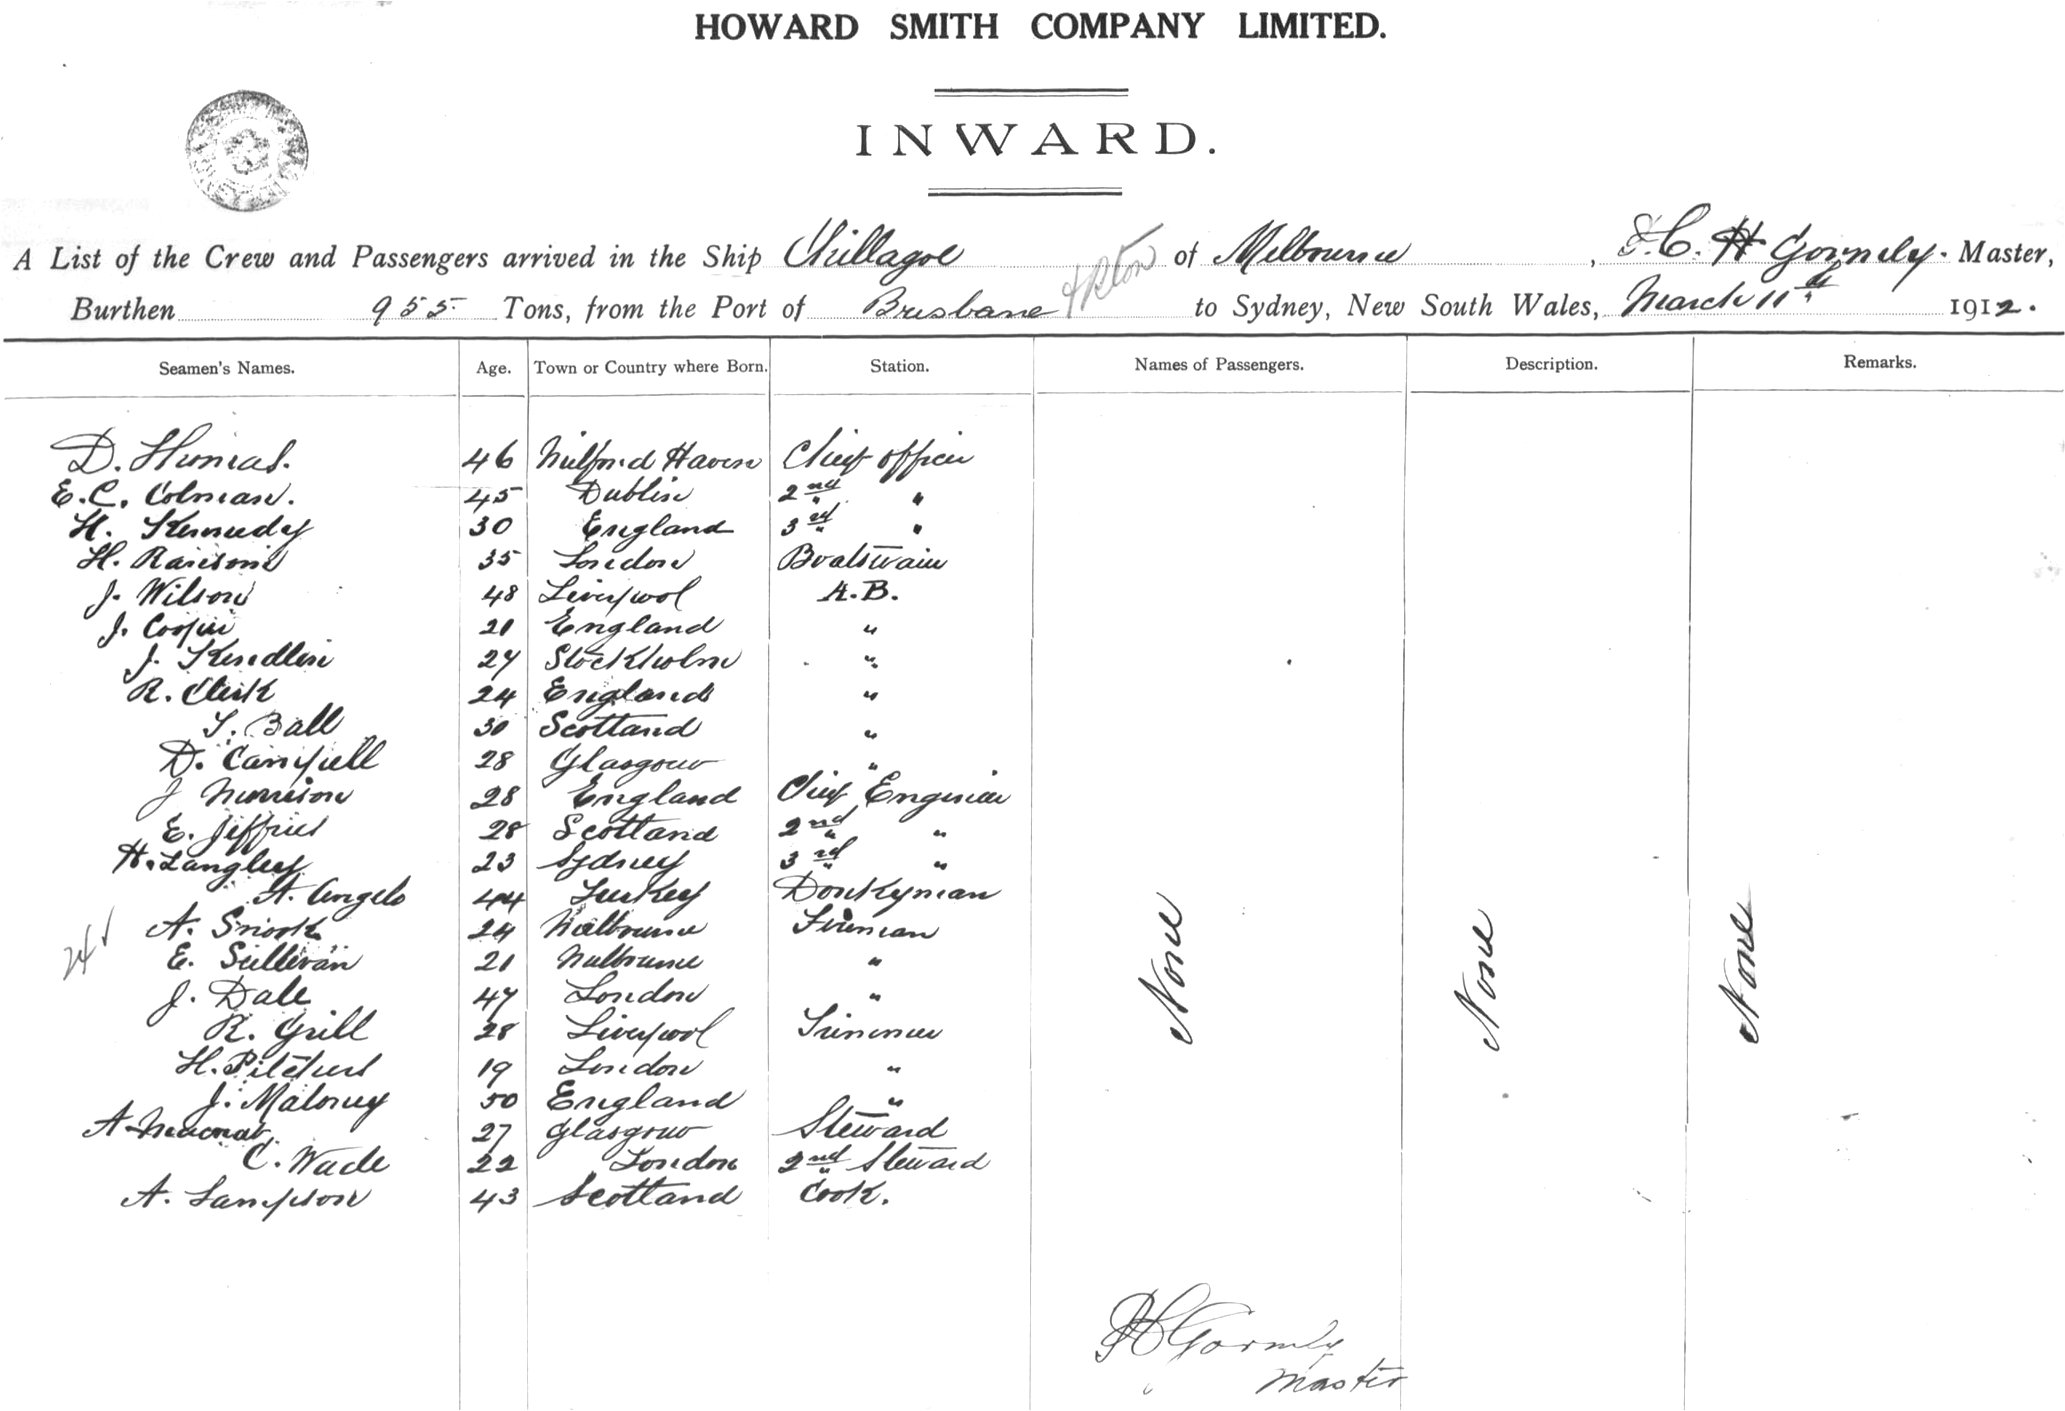 HOWARD SMITH COMPANY LIMITED.
INWARD.
A List of the Crew and Passengers arrived in the Ship Chillagoe of Melbourne, H. C. Gormely. Master,
Burthen 955 Tons, from the Port of Brisbane to Sydney, New South Wales, March 11th 1912.
Seamen's Names. Age. Town or Country where Born. Station. Names of Passengers. Description. Remarks.
D. Thomas. 46 Milford Haven Chief officer
E. C. Colman. 45 Dublin 2nd "
H. Kennedy 30 England 3rd "
H. Ransome 35 London Boatswain
J. Wilson 48 Liverpool A.B.
J. Cooper 21 England "
J. Kindlin 27 Stockholm "
R. Clerk 24 England "
T. Ball 30 Scotland "
D. Campell 28 Glasgow "
J Morrison 28 England Chief Engineer
E. Jeffries 28 Scotland 2nd "
H. Langley 23 Sydney 3rd "
A. Angelo 44 Turkey Donkyman
A. Snook 24 Melbourne Fireman
E. Sullivan 21 Melbourne "
J. Dale 47 London "
R. Grill 28 Liverpool Trimmer
H. Pitchers 19 London "
J. Maloney 50 England "
A. Macnab 27 Glasgow Steward
C. Wade 22 London 2nd Steward
A. Sampson 43 Scotland Cook.
None None None
24
H C Gormly
Master